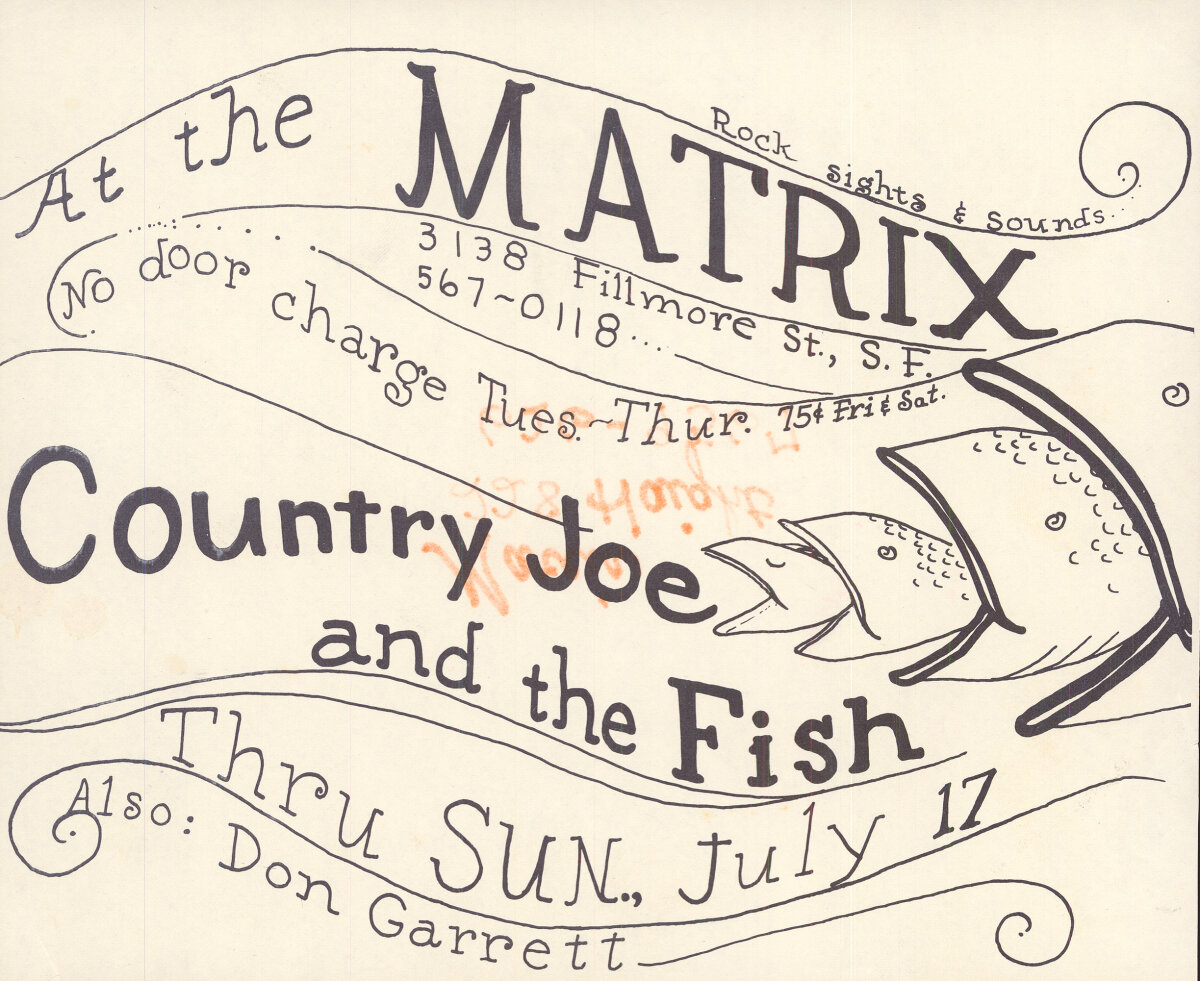 At the MATRIX
Rock sights & sounds...
3138 Fillmore St., S. F.
567~0118....
No door charge Tues.~Thur. 75¢ Fri & Sat.
Country Joe
and the Fish
Thru SUN., July 17
Also: Don Garrett